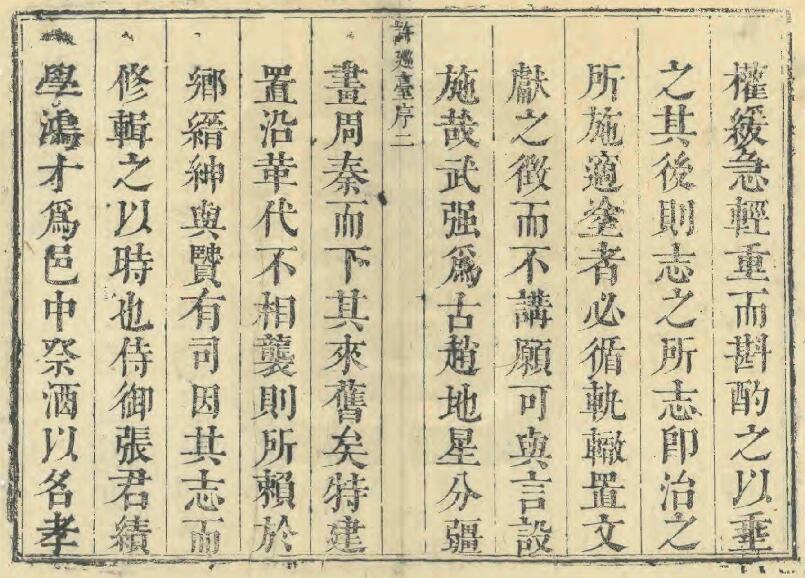 權緩急輕重而斟酌之以垂
之其後則志之所志卽治之
所施適塗者必循軌轍置文
獻之徵而不講願可與言設
施哉武强爲古趙地星分疆
許巡臺序二
畫周秦而下其來舊矣特建
置沿革代不相襲則所賴於
鄉縉紳與賢有司因其志而
修輯之以時也侍御張君績
學鴻才爲邑中祭酒以名孝